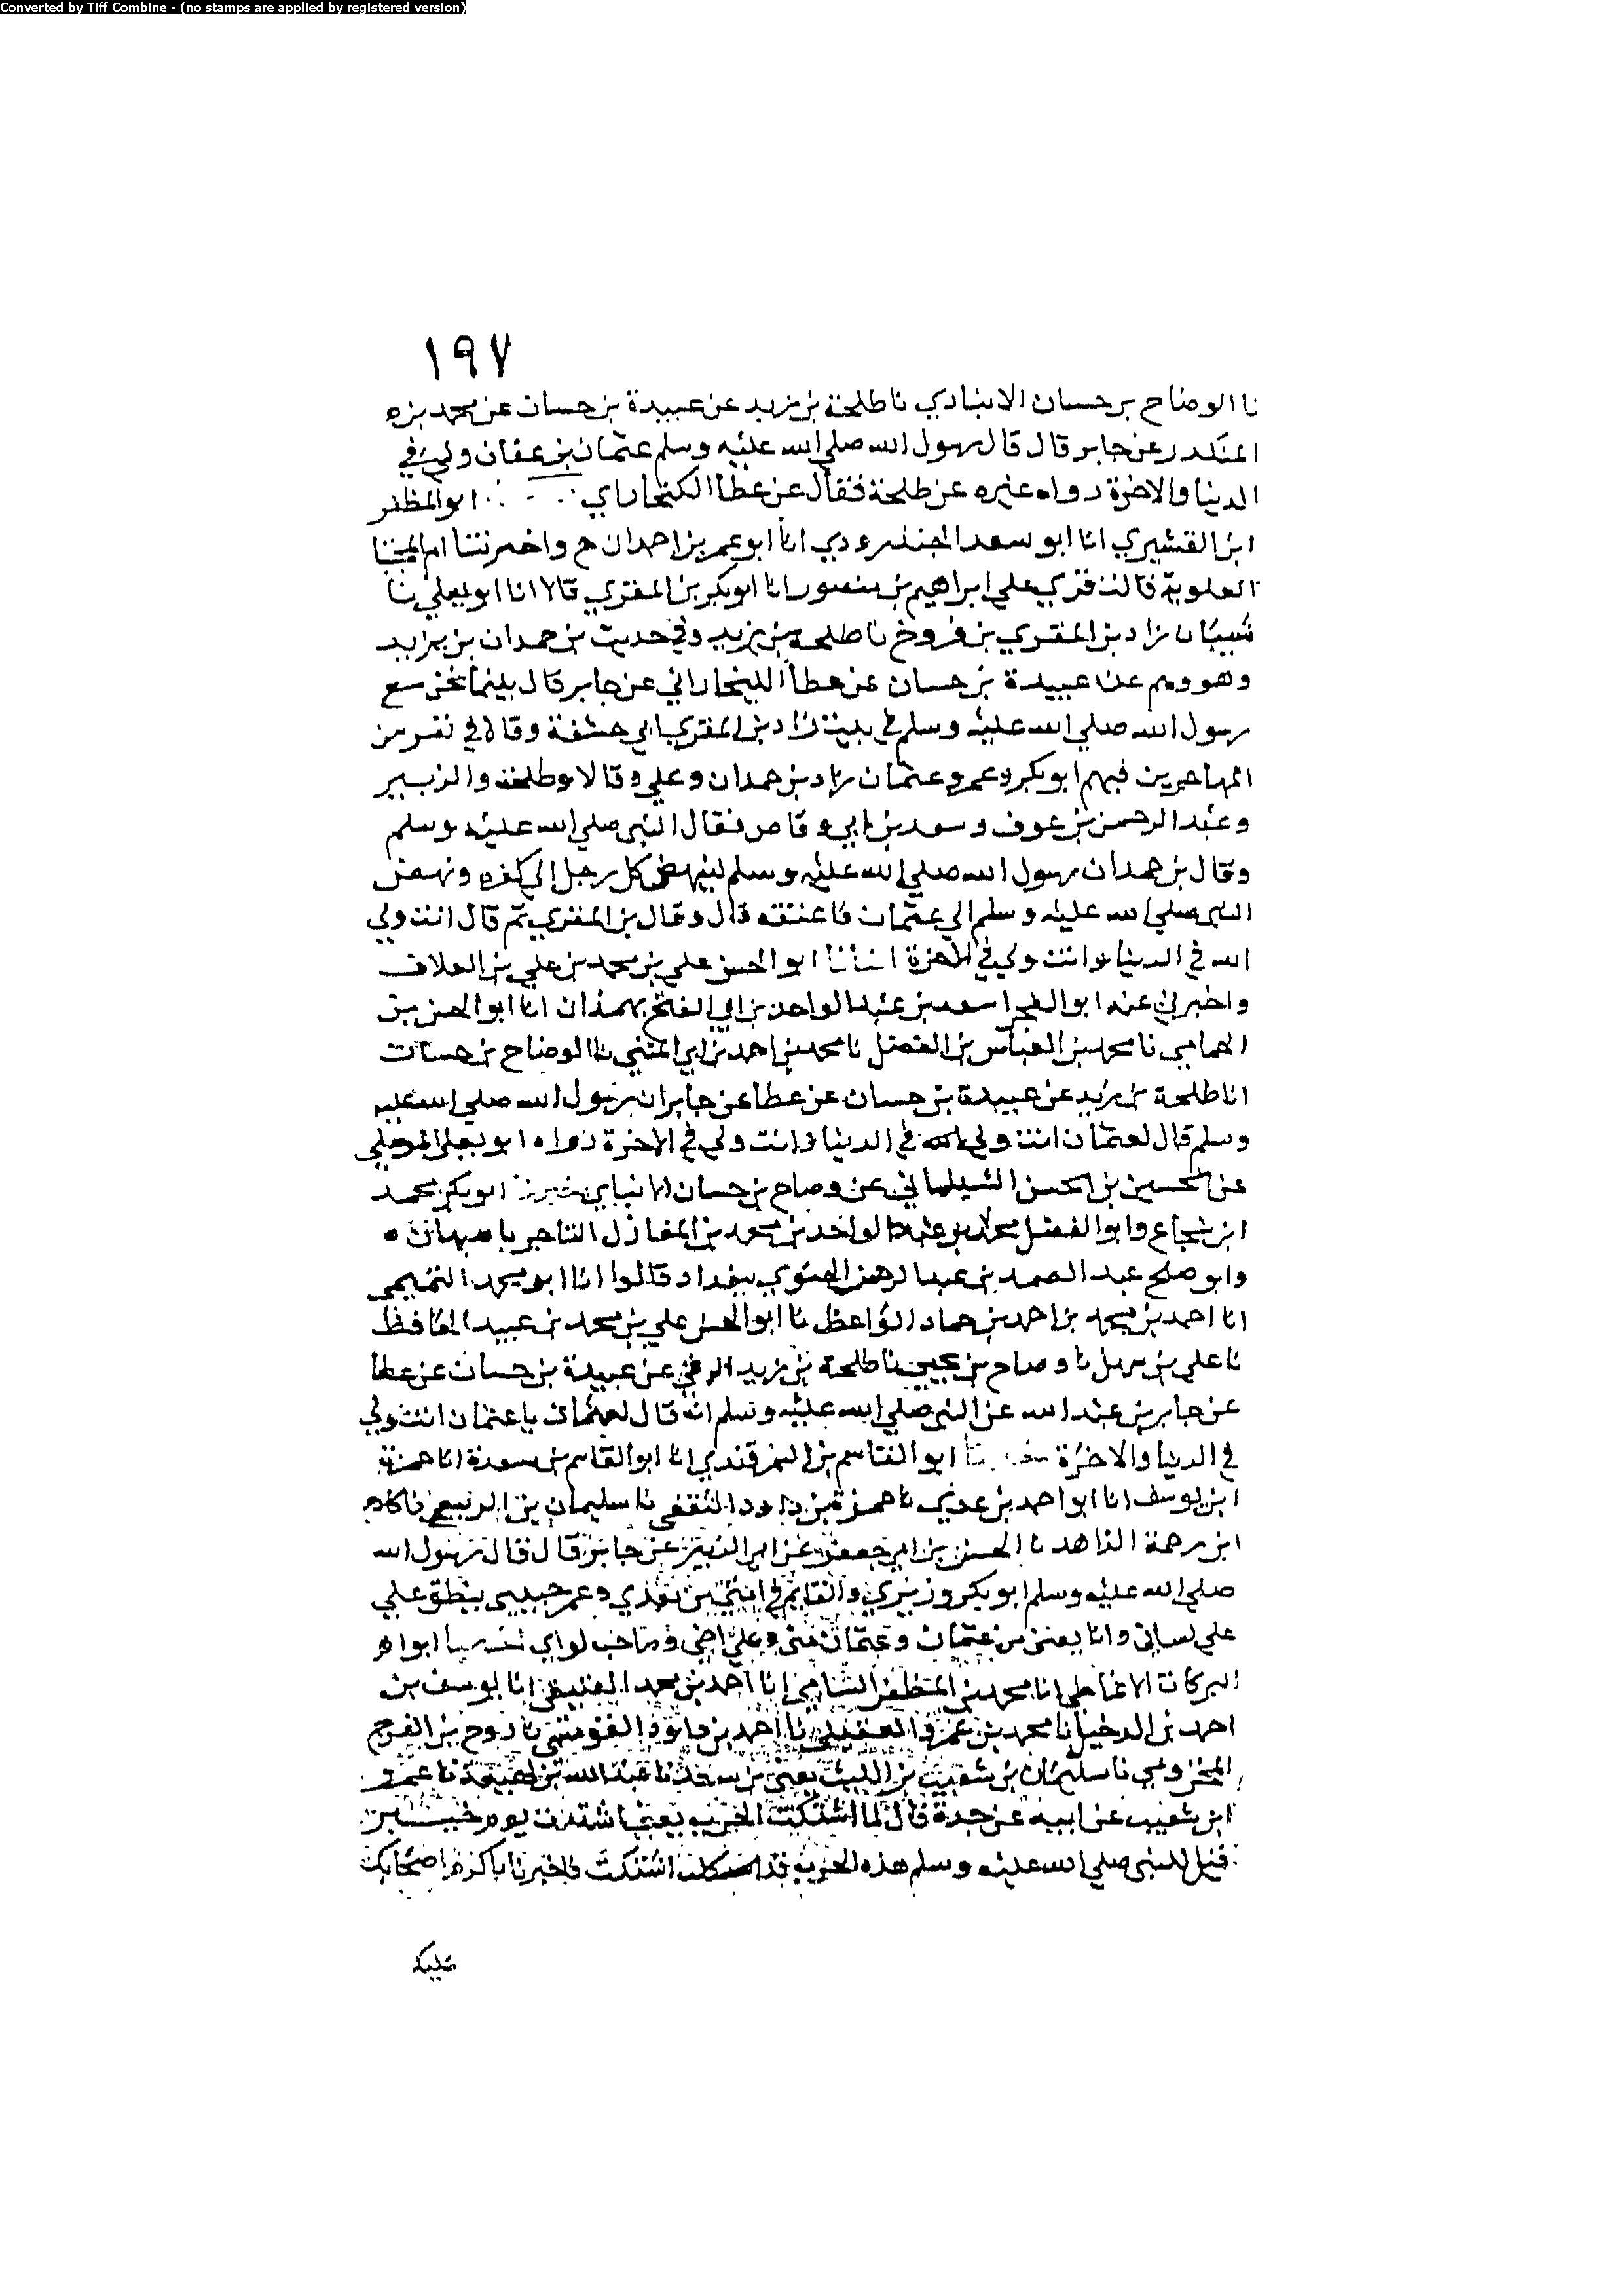 Converted by Tiff Combine - (no stamps are applied by registered version)
١٩٧
نا الوضاح بن حسان الانباري نا طلحة بن زيد عن عبيدة بن حسان عن محمد بن
المنكدر عن جابر قال قال رسول الله صلي الله عليه وسلم عثمان بن عفان وليي في
الدنيا والاخرة رواه غيره عن طلحة فقال عن عطا الكيخاراني ابو المظفر
ابن القشيري انا ابو سعد الجنزرودي انا ابو عمر بن احمدان ح واخبرتنا ام المجتبا
العلوية قالت قري علي ابراهيم بن منصور انا ابو بكر بن المقري قالا انا ابو يعلي نا
شيبان زاد بن المقري بن فروخ نا طلحة بن زيد وفي حديث بن حمدان بن يزيد
وهو وهم عن عبيدة بن حسان عن عطا الكيخاراني عن جابر قال بينما نحن مع
رسول الله صلي الله عليه وسلم في بيت زاد بن المقري ابي حشفة وقالا في نفر من
المهاجرين فيهم ابو بكر وعمر وعثمان زاد بن حمدان وعلي وقالا وطلحة والزبير
وعبد الرحمن بن عوف وسعد بن ابي وقاص فقال النبي صلي الله عليه وسلم
وقال بن حمدان رسول الله صلي الله عليه وسلم لينهض كل رجل الي كفوه ونهض
النبي صلي الله عليه وسلم الي عثمان فاعتنقه قال وقال بن المقري ثم قال انت وليي
الله في الدنيا وانت وليي في الاخرة انبانا ابو الحسن علي بن محمد بن علي بن العلاف
واخبرني عنه ابو الفجر اسعد بن عبد الواحد بن ابي الفتح بهمذان انا ابو الحسن بن
الحمامي نا محمد بن العباس بن الفضل نا محمد بن احمد بن ابي المثني نا الوضاح بن حسان
انا طلحة بن زيد عن عبيدة بن حسان عن عطا عن جابر ان رسول الله صلي الله عليه
وسلم قال لعثمان انت وليي في الدنيا وانت وليي في الاخرة رواه ابو يعلي الموصلي
عن الحسين بن الحسن الشيلماني عن وضاح بن حسان الانباري ابو بكر محمد
ابن شجاع وابو الفضل محمد بن عبد الواحد بن محمد بن المغازل التاجر باصبهان ه
وابو صلح عبد الصمد بن عبد الرحمن الحنوي ببغداد قالوا انا ابو محمد التميمي
انا احمد بن محمد بن احمد بن حماد الواعظ نا ابو الحسن علي بن محمد بن عبيد الحافظ
نا علي بن سهل نا وضاح بن يحيي نا طلحة بن زيد الرقي عن عبيدة بن حسان عن عطا
عن جابر بن عبد الله عن النبي صلي الله عليه وسلم انه قال لعثمان يا عثمان انت وليي
في الدنيا والاخرة ابو القاسم بن السمرقندي انا ابو القاسم بن مسعدة انا حمزة
ابن يوسف انا ابو احمد بن عدي نا حمزة بن داود الثقفي نا سليمان بن الربيع نا كادح
ابن رحمة الزاهد نا الحسن بن ابي جعفر عن ابي الزبير عن جابر قال قال رسول الله
صلي الله عليه وسلم ابو بكر وزيري والقايم في امتي من بعدي وعمر حبيبي ينطق علي
علي لساني وانا يعني من عثمان وعثمان مني وعلي اخي وصاحب لواي ابوا ه
البركات الانماطي انا محمد بن المظفر الشامي انا احمد بن محمد العتيقي انا يوسف بن
احمد بن الدخيل نا محمد بن عمرو العقيلي نا احمد بن داود القومسي نا روح بن الفرج
المخزومي نا سليمان بن شعيب بن الليث يعني بن سعد نا عبد الله بن لهيعة نا عمرو
ابن شعيب عن ابيه عن جده قال لما اشتكت الحرب يعني اشتدت يوم خيبر
قيل للنبي صلي الله عليه وسلم هذه الحرب قد اشتكت فاخبرنا باكرم اصحابك
عليك